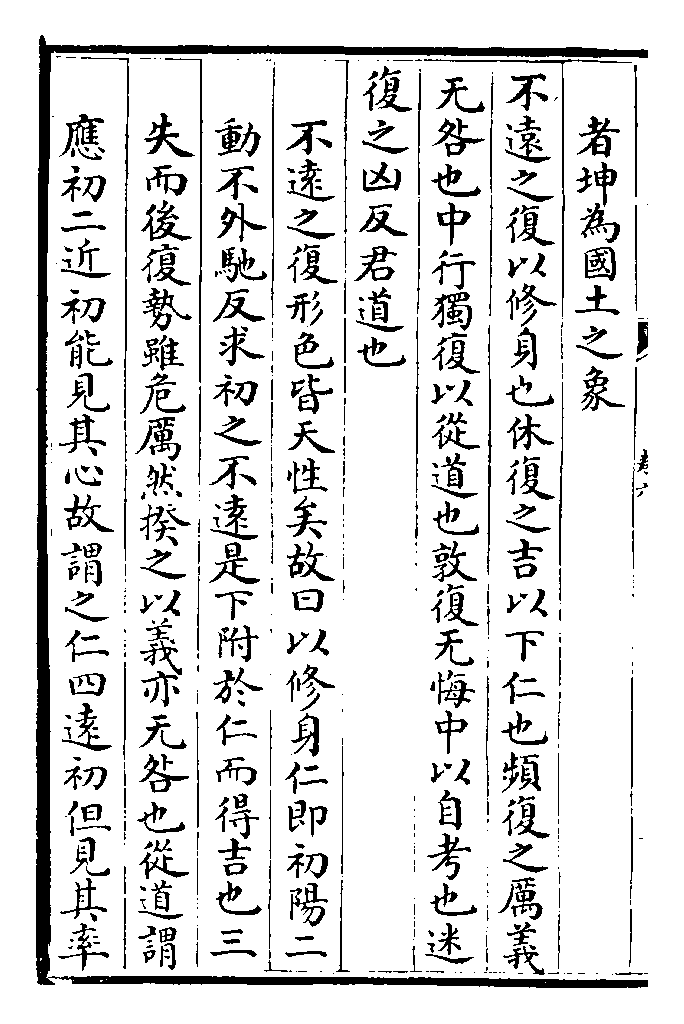 者坤為國土之象
不遠之復以修身也休復之吉以下仁也頻復之厲義
无咎也中行獨復以從道也敦復无悔中以自考也迷
復之凶反君道也
不遠之復形色皆天性矣故曰以修身仁即初陽二
動不外馳反求初之不遠是下附於仁而得吉也三
失而後復勢雖危厲然揆之以義亦无咎也從道謂
應初二近初能見其心故謂之仁四遠初但見其率